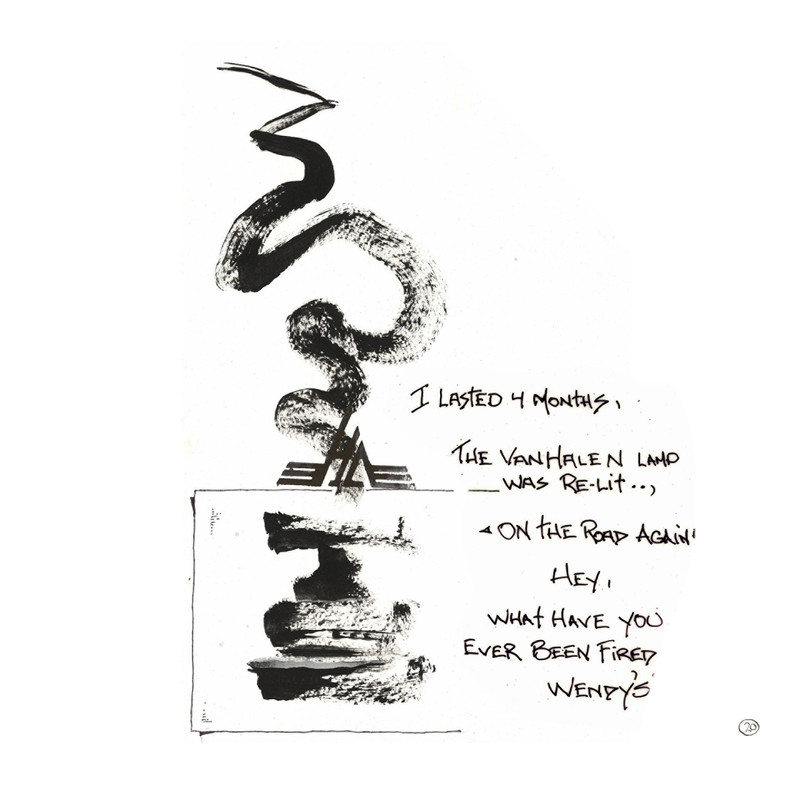 I LASTED 4 MONTHS,
THE VAN HALEN LAMP
WAS RE-LIT..,
ON THE ROAD AGAIN'
HEY,
WHAT HAVE YOU
EVER BEEN FIRED
WENDY'S
20